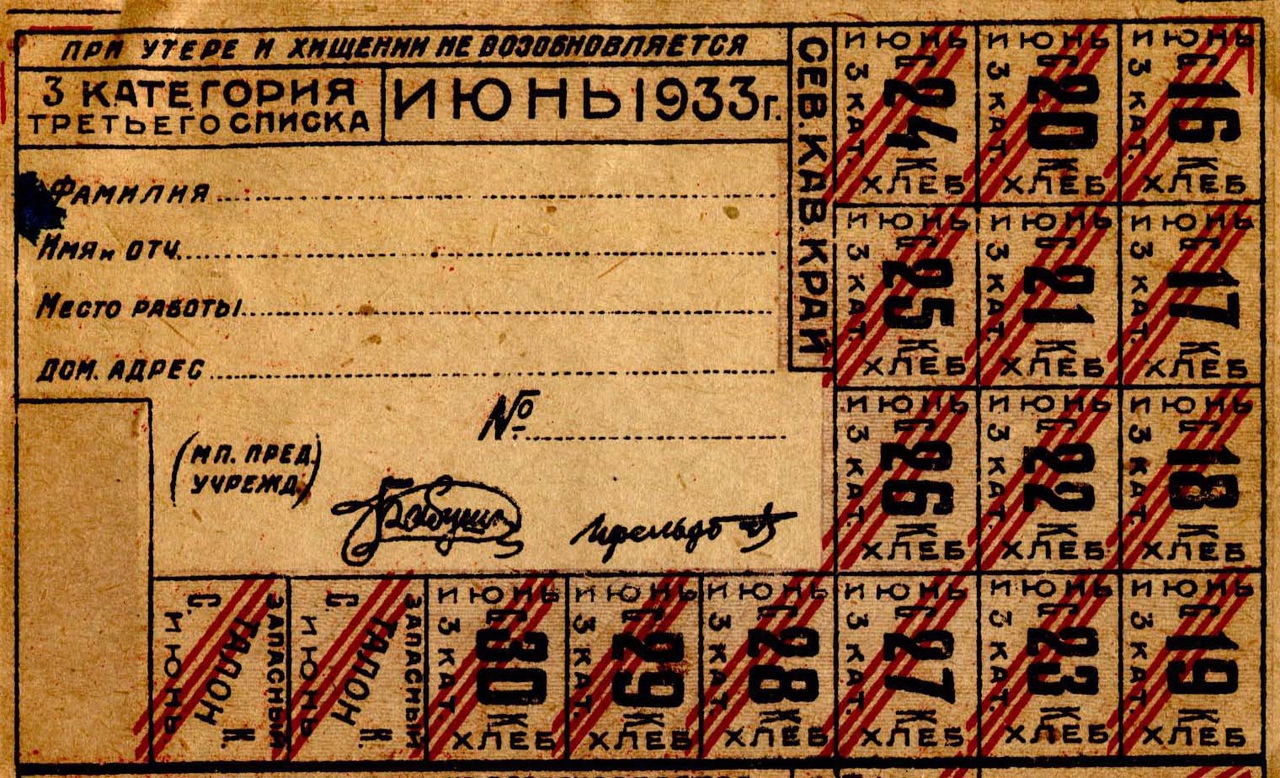 ПРИ УТЕРЕ И ХИЩЕНИИ НЕ ВОЗОБНОВЛЯЕТСЯ
3 КАТЕГОРИЯ
ТРЕТЬЕГО СПИСКА
ИЮНЬ 1933 г.
СЕВ. КАВ. КРАЙ
ФАМИЛИЯ
ИМЯ и ОТЧ.
МЕСТО РАБОТЫ
ДОМ. АДРЕС
№
(МП. ПРЕД.
УЧРЕЖД.)
ИЮНЬ
3 КАТ.
Г 24 К
ХЛЕБ
ИЮНЬ
3 КАТ.
Г 20 К
ХЛЕБ
ИЮНЬ
3 КАТ.
Г 16 К
ХЛЕБ
ИЮНЬ
3 КАТ.
Г 25 К
ХЛЕБ
ИЮНЬ
3 КАТ.
Г 21 К
ХЛЕБ
ИЮНЬ
3 КАТ.
Г 17 К
ХЛЕБ
ИЮНЬ
3 КАТ.
Г 26 К
ХЛЕБ
ИЮНЬ
3 КАТ.
Г 22 К
ХЛЕБ
ИЮНЬ
3 КАТ.
Г 18 К
ХЛЕБ
ЗАПАСНЫЙ
С. ТАЛОН К.
ИЮНЬ
ЗАПАСНЫЙ
С. ТАЛОН К.
ИЮНЬ
ИЮНЬ
3 КАТ.
Г 30 К
ХЛЕБ
ИЮНЬ
3 КАТ.
Г 29 К
ХЛЕБ
ИЮНЬ
3 КАТ.
Г 28 К
ХЛЕБ
ИЮНЬ
3 КАТ.
Г 27 К
ХЛЕБ
ИЮНЬ
3 КАТ.
Г 23 К
ХЛЕБ
ИЮНЬ
3 КАТ.
Г 19 К
ХЛЕБ